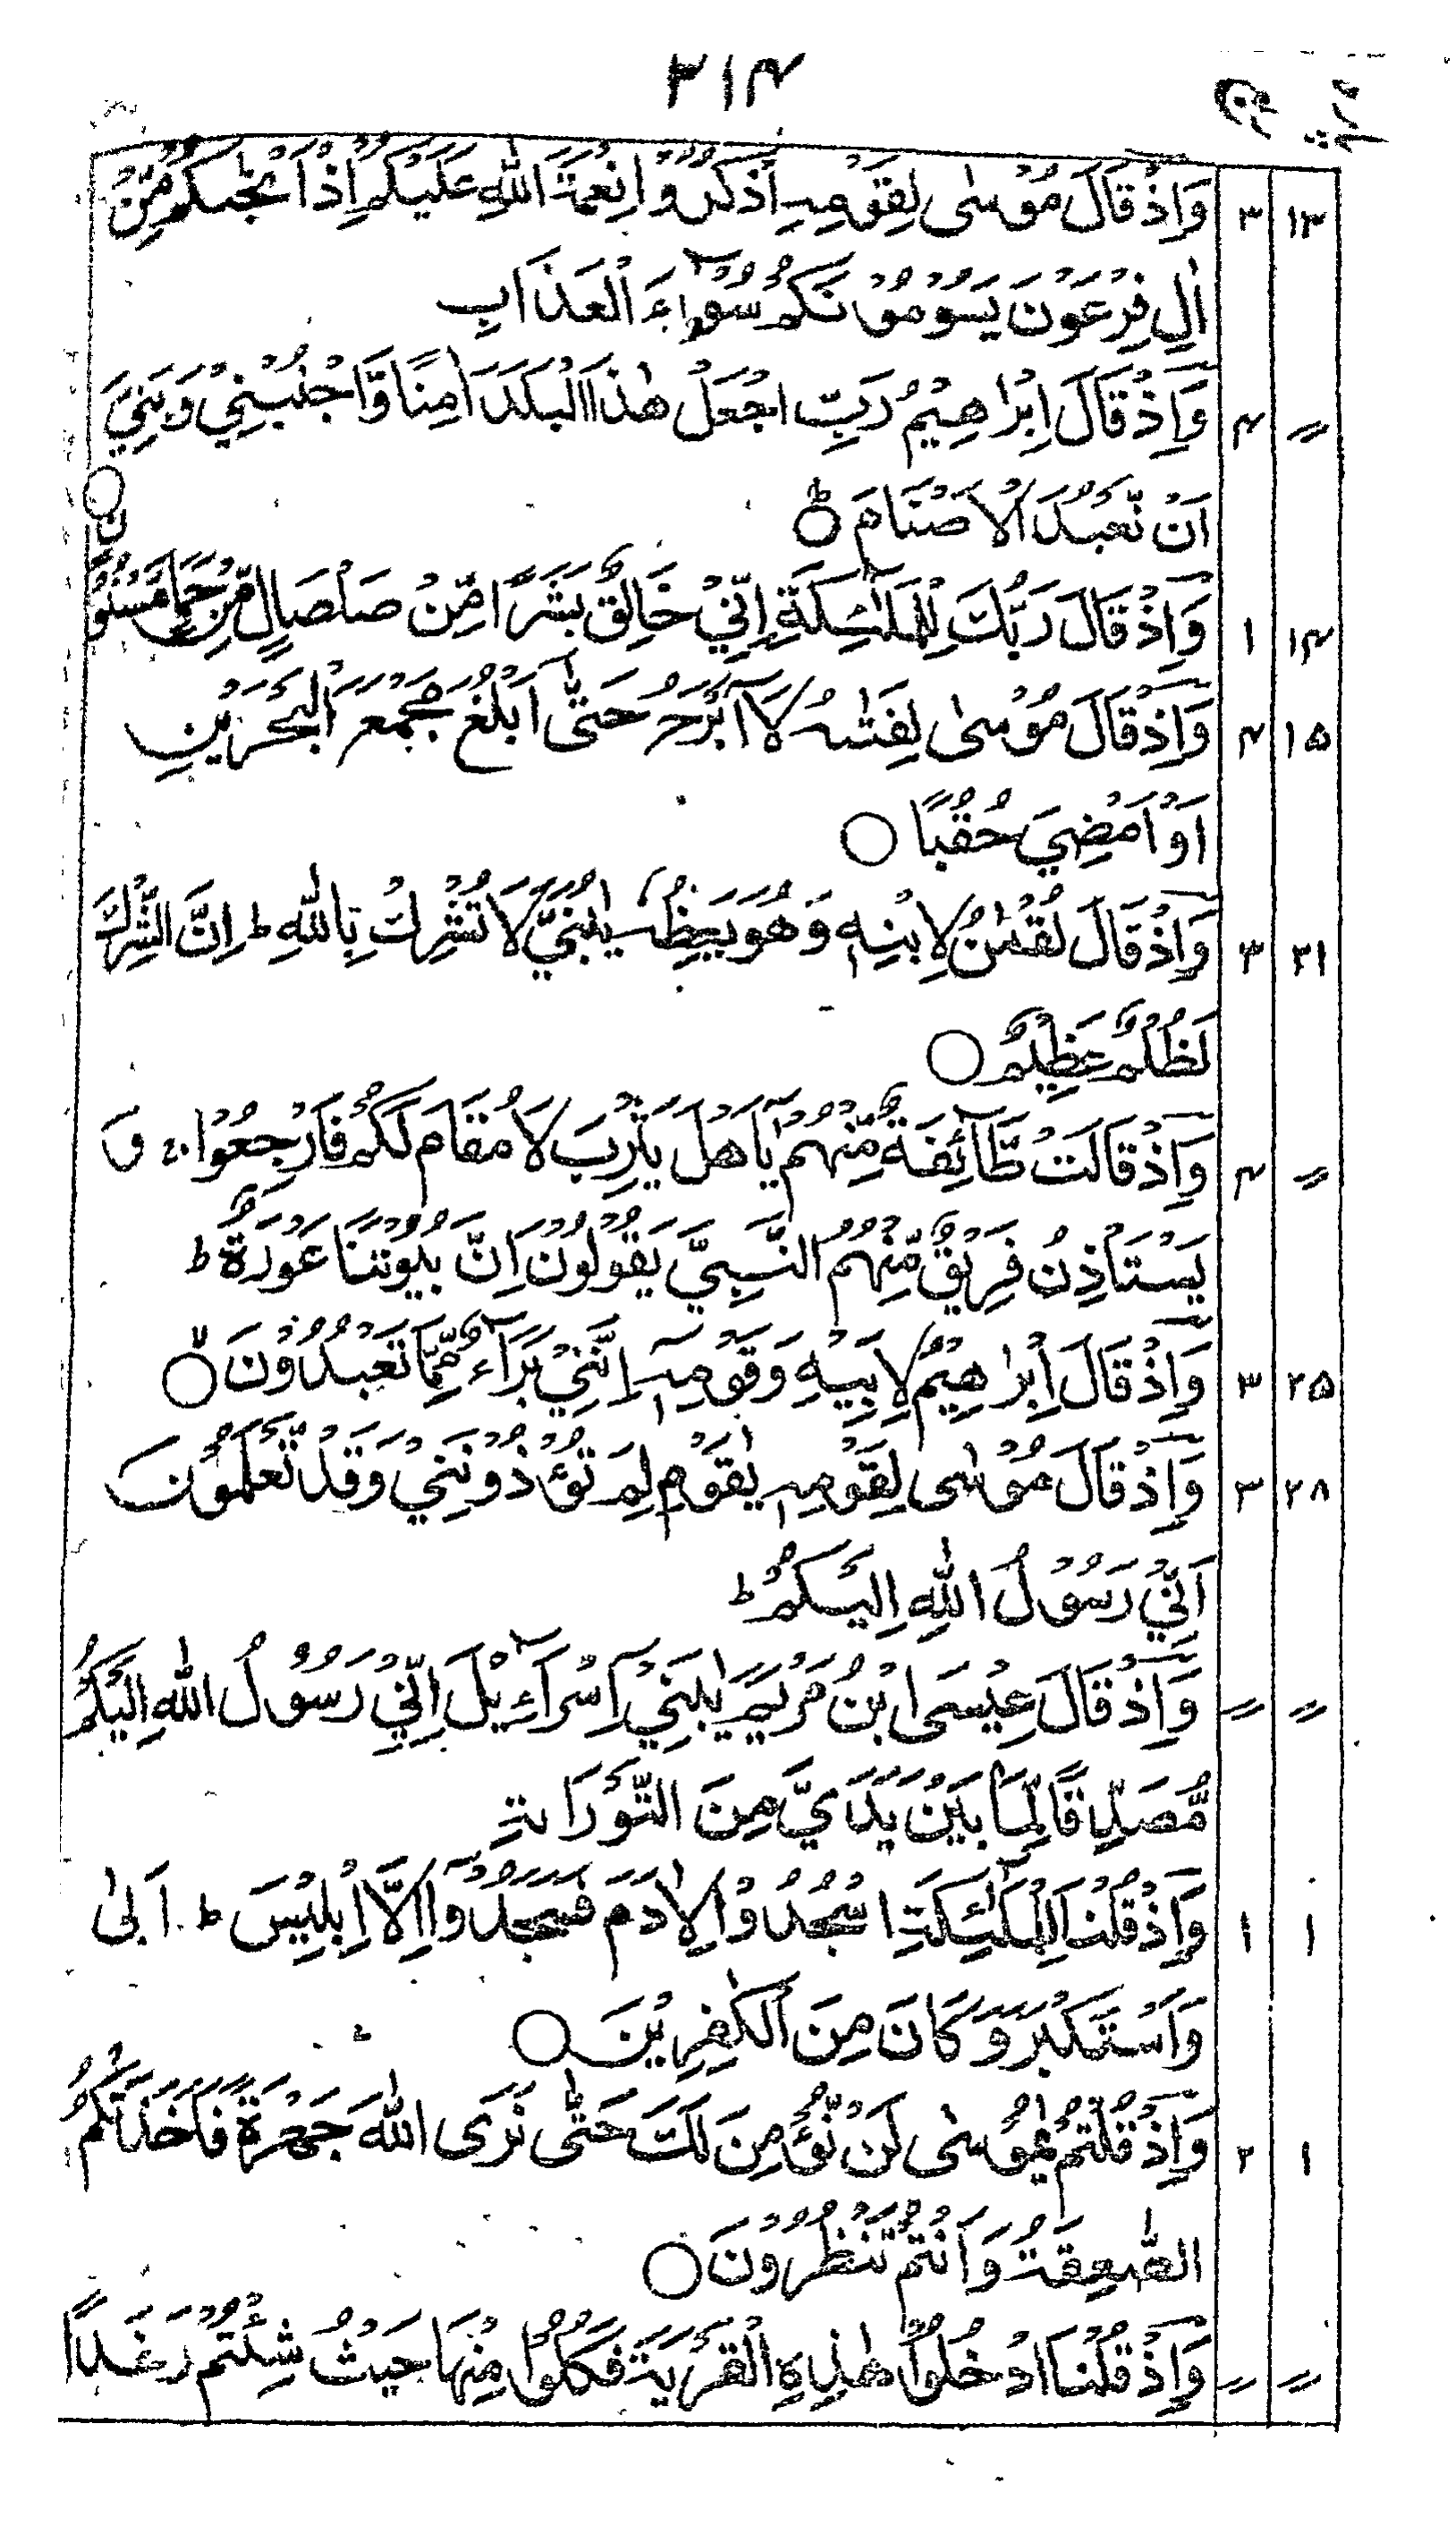 ۳۱۴
۱۳ ۳ وَاِذْ قَالَ مُوْسٰى لِقَوْمِهِ اذْكُرُوْا نِعْمَةَ اللّٰهِ عَلَيْكُمْ اِذْ اَنْجٰىكُمْ مِّنْ
اٰلِ فِرْعَوْنَ يَسُوْمُوْنَكُمْ سُوْٓءَ الْعَذَابِ
〃 ۴ وَاِذْ قَالَ اِبْرَاهِيْمُ رَبِّ اجْعَلْ هٰذَا الْبَلَدَ اٰمِنًا وَّاجْنُبْنِيْ وَبَنِيَّ
اَنْ نَّعْبُدَ الْاَصْنَامَ ؕ○
۱۴ ۱ وَاِذْ قَالَ رَبُّكَ لِلْمَلٰٓئِكَةِ اِنِّيْ خَالِقٌۢ بَشَرًا مِّنْ صَلْصَالٍ مِّنْ حَمَاٍ مَّسْنُوْنٍ○
۱۵ ۴ وَاِذْ قَالَ مُوْسٰى لِفَتٰىهُ لَآ اَبْرَحُ حَتّٰىٓ اَبْلُغَ مَجْمَعَ الْبَحْرَيْنِ
اَوْ اَمْضِيَ حُقُبًا ○
۲۱ ۳ وَاِذْ قَالَ لُقْمٰنُ لِابْنِهٖ وَهُوَ يَعِظُهٗ يٰبُنَيَّ لَا تُشْرِكْ بِاللّٰهِ ؕ اِنَّ الشِّرْكَ
لَظُلْمٌ عَظِيْمٌ ○
〃 ۴ وَاِذْ قَالَتْ طَّآئِفَةٌ مِّنْهُمْ يٰٓاَهْلَ يَثْرِبَ لَا مُقَامَ لَكُمْ فَارْجِعُوْا ۚ وَ
يَسْتَاْذِنُ فَرِيْقٌ مِّنْهُمُ النَّبِيَّ يَقُوْلُوْنَ اِنَّ بُيُوْتَنَا عَوْرَةٌ ؕ
۲۵ ۳ وَاِذْ قَالَ اِبْرٰهِيْمُ لِاَبِيْهِ وَقَوْمِهٖٓ اِنَّنِيْ بَرَآءٌ مِّمَّا تَعْبُدُوْنَ ۙ○
۲۸ ۳ وَاِذْ قَالَ مُوْسٰى لِقَوْمِهٖ يٰقَوْمِ لِمَ تُؤْذُوْنَنِيْ وَقَدْ تَّعْلَمُوْنَ
اَنِّيْ رَسُوْلُ اللّٰهِ اِلَيْكُمْ ؕ
〃 〃 وَاِذْ قَالَ عِيْسَى ابْنُ مَرْيَمَ يٰبَنِيْٓ اِسْرَآءِيْلَ اِنِّيْ رَسُوْلُ اللّٰهِ اِلَيْكُمْ
مُّصَدِّقًا لِّمَا بَيْنَ يَدَيَّ مِنَ التَّوْرَاةِ
۱ ۱ وَاِذْ قُلْنَا لِلْمَلٰٓئِكَةِ اسْجُدُوْا لِاٰدَمَ فَسَجَدُوْٓا اِلَّآ اِبْلِيْسَ ؕ اَبٰى
وَاسْتَكْبَرَ وَكَانَ مِنَ الْكٰفِرِيْنَ ○
۱ ۲ وَاِذْ قُلْتُمْ يٰمُوْسٰى لَنْ نُّؤْمِنَ لَكَ حَتّٰى نَرَى اللّٰهَ جَهْرَةً فَاَخَذَتْكُمُ
الصّٰعِقَةُ وَاَنْتُمْ تَنْظُرُوْنَ ○
〃 〃 وَاِذْ قُلْنَا ادْخُلُوْا هٰذِهِ الْقَرْيَةَ فَكُلُوْا مِنْهَا حَيْثُ شِئْتُمْ رَغَدًا